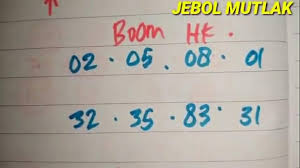 JEBOL MUTLAK
Boom HK.
02 . 05 . 08 . 01
32 . 35 . 83 . 31